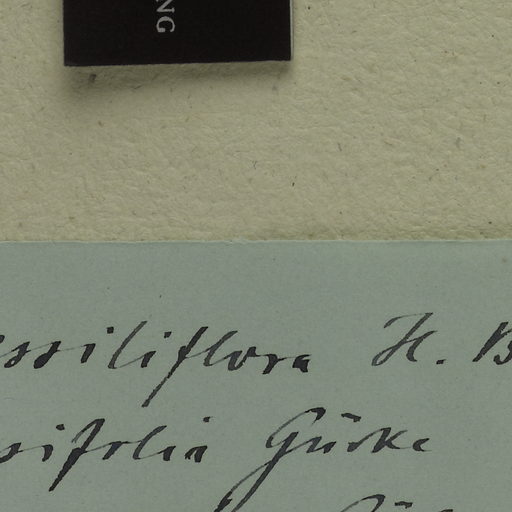 NG
ssiliflora H. B
sifolia Gürke